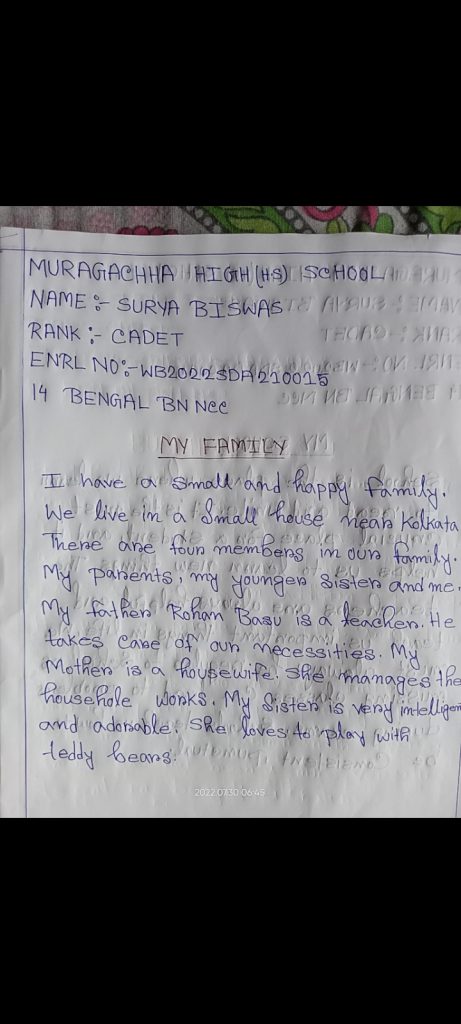 MURAGACHHA HIGH (HS) SCHOOL
NAME :- SURYA BISWAS
RANK :- CADET
ENRL NO :- WB2022SDA210015
14 BENGAL BN NCC
MY FAMILY
I have a small and happy family.
We live in a small house near Kolkata
There are four members in our family.
My parents, my younger sister and me.
My father Rohan Basu is a teacher. He
takes care of our necessities. My
Mother is a housewife. She manages the
househole works. My Sister is very intelligen
and adorable. She loves to play with
teddy bears.
2022.07.30 06:45